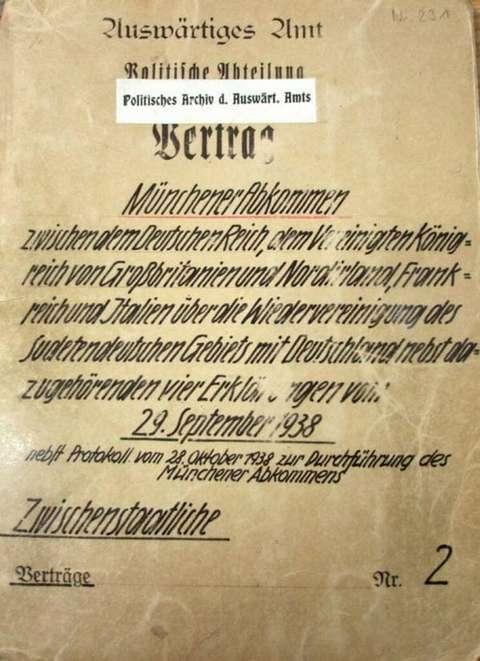 Nr. 231
Auswärtiges Amt
Politische Abteilung
Politisches Archiv d. Auswärt. Amts
Vertrag
Münchener Abkommen
zwischen dem Deutschen Reich, dem Vereinigten König=
reich von Großbritanien und Nordirland, Frank=
reich und Italien über die Wiedervereinigung des
Sudetendeutschen Gebiets mit Deutschland nebst da=
zugehörenden vier Erklärungen vom
29. September 1938
nebst Protokoll vom 28. Oktober 1938 zur Durchführung des
Münchener Abkommens
Zwischenstaatliche
Verträge Nr. 2